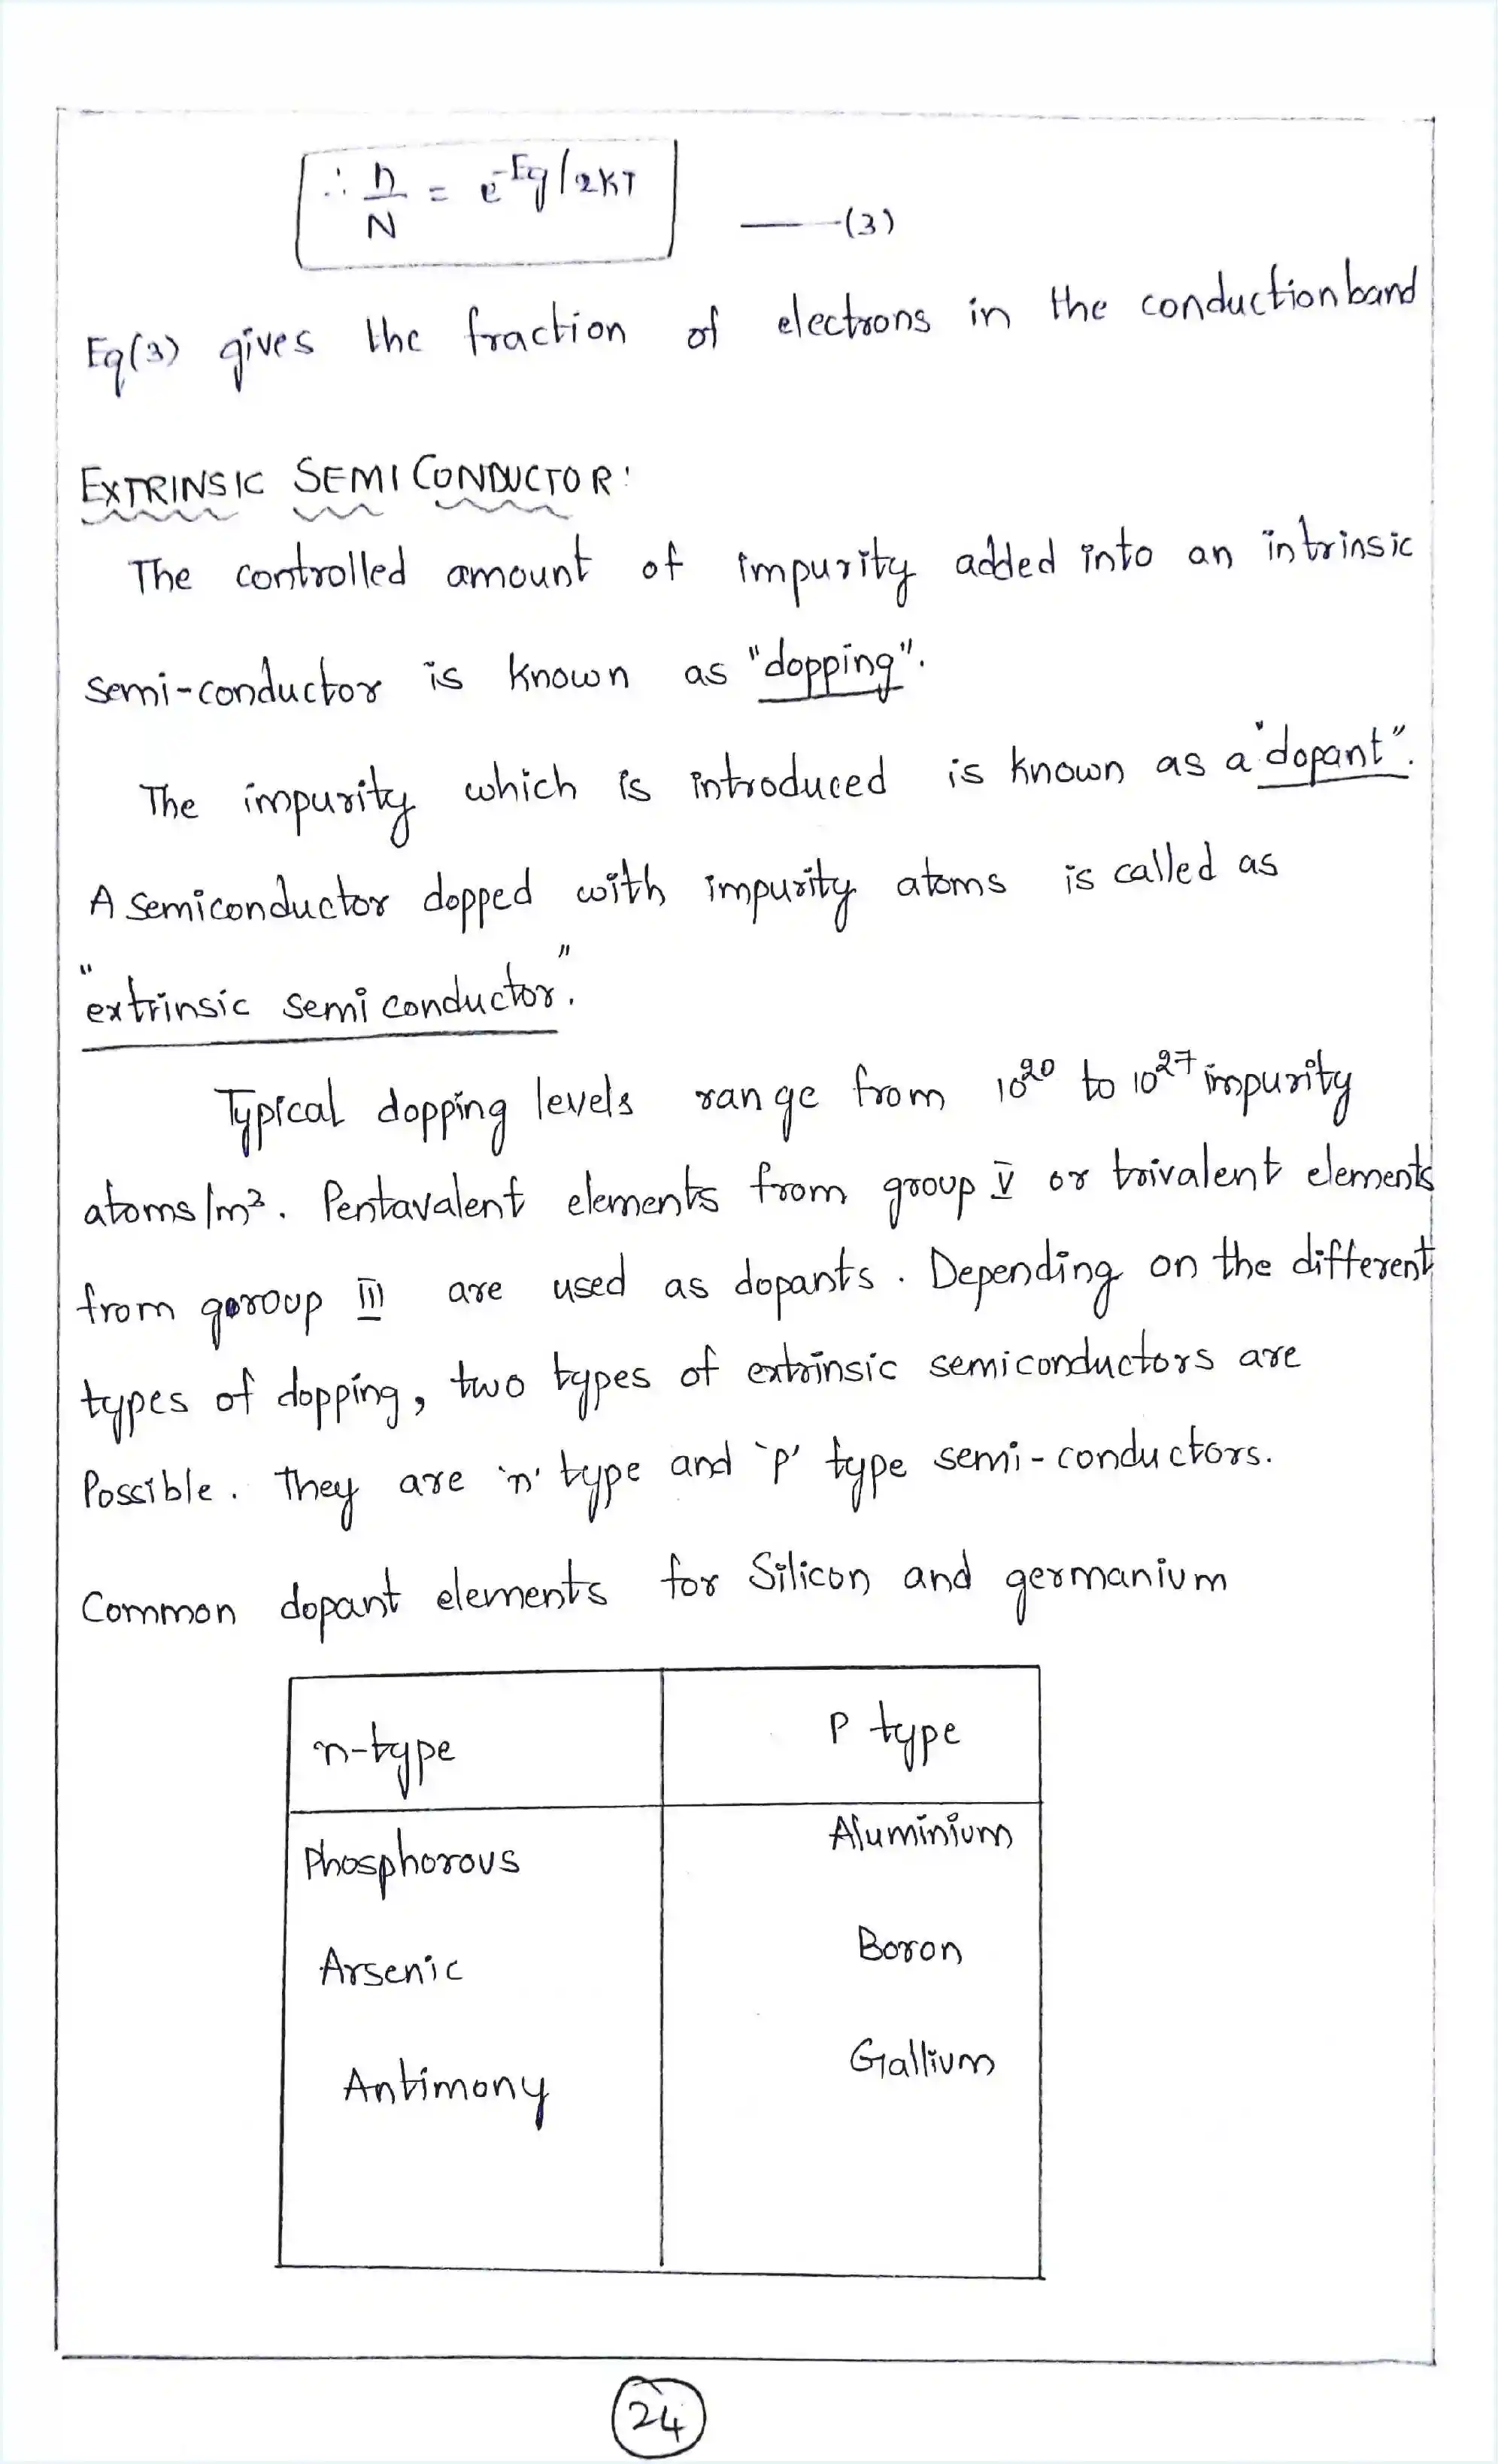 ∴ n/N = e^-Eg/2KT ——(3)
Eq(3) gives the fraction of electrons in the conductionband
EXTRINSIC SEMI CONDUCTOR:
The controlled amount of impurity added into an intrinsic
semi-conductor is known as "dopping".
The impurity which is introduced is known as a "dopant".
A semiconductor dopped with impurity atoms is called as
"extrinsic semi conductor."
Typical dopping levels range from 10^20 to 10^27 impurity
atoms/m³. Pentavalent elements from group V or trivalent elements
from goroup III are used as dopants. Depending on the different
types of dopping, two types of extrinsic semiconductors are
Possible. They are 'n' type and 'p' type semi-conductors.
Common dopant elements for Silicon and germanium
n-type P type
Phosphorous Aluminium
Arsenic Boron
Antimony Gallium
24